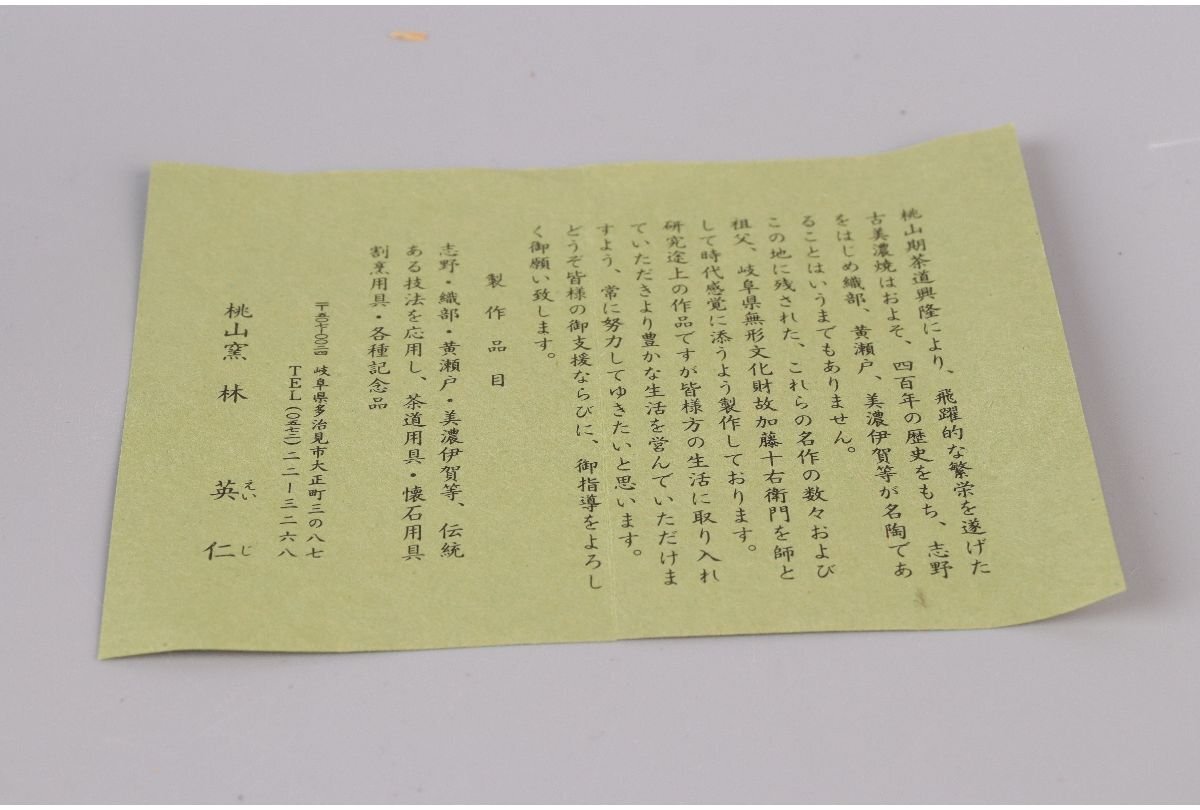 桃山期茶道興隆により、飛躍的な繁栄を遂げた
古美濃焼はおよそ、四百年の歴史をもち、志野
をはじめ織部、黄瀬戸、美濃伊賀等が名陶であ
ることはいうまでもありません。
この地に残された、これらの名作の数々および
祖父、岐阜県無形文化財故加藤十右衛門を師と
して時代感覚に添うよう製作しております。
研究途上の作品ですが皆様方の生活に取り入れ
ていただきより豊かな生活を営んでいただけま
すよう、常に努力してゆきたいと思います。
どうぞ皆様の御支援ならびに、御指導をよろし
く御願い致します。
製作品目
志野・織部・黄瀬戸・美濃伊賀等、伝統
ある技法を応用し、茶道用具・懐石用具
割烹用具・各種記念品
〒五〇七-〇〇三四 岐阜県多治見市大正町三の八七
TEL(〇五七二)二二ー三二六八
桃山窯 林 英仁
えい じ